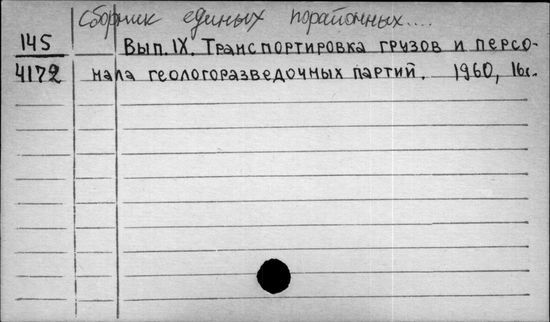 Сборник единых порайонных....
145 Вып. IX. Транспортировка грузов и персо-
4172 нала геологоразведочных партий. 1960, 16с.